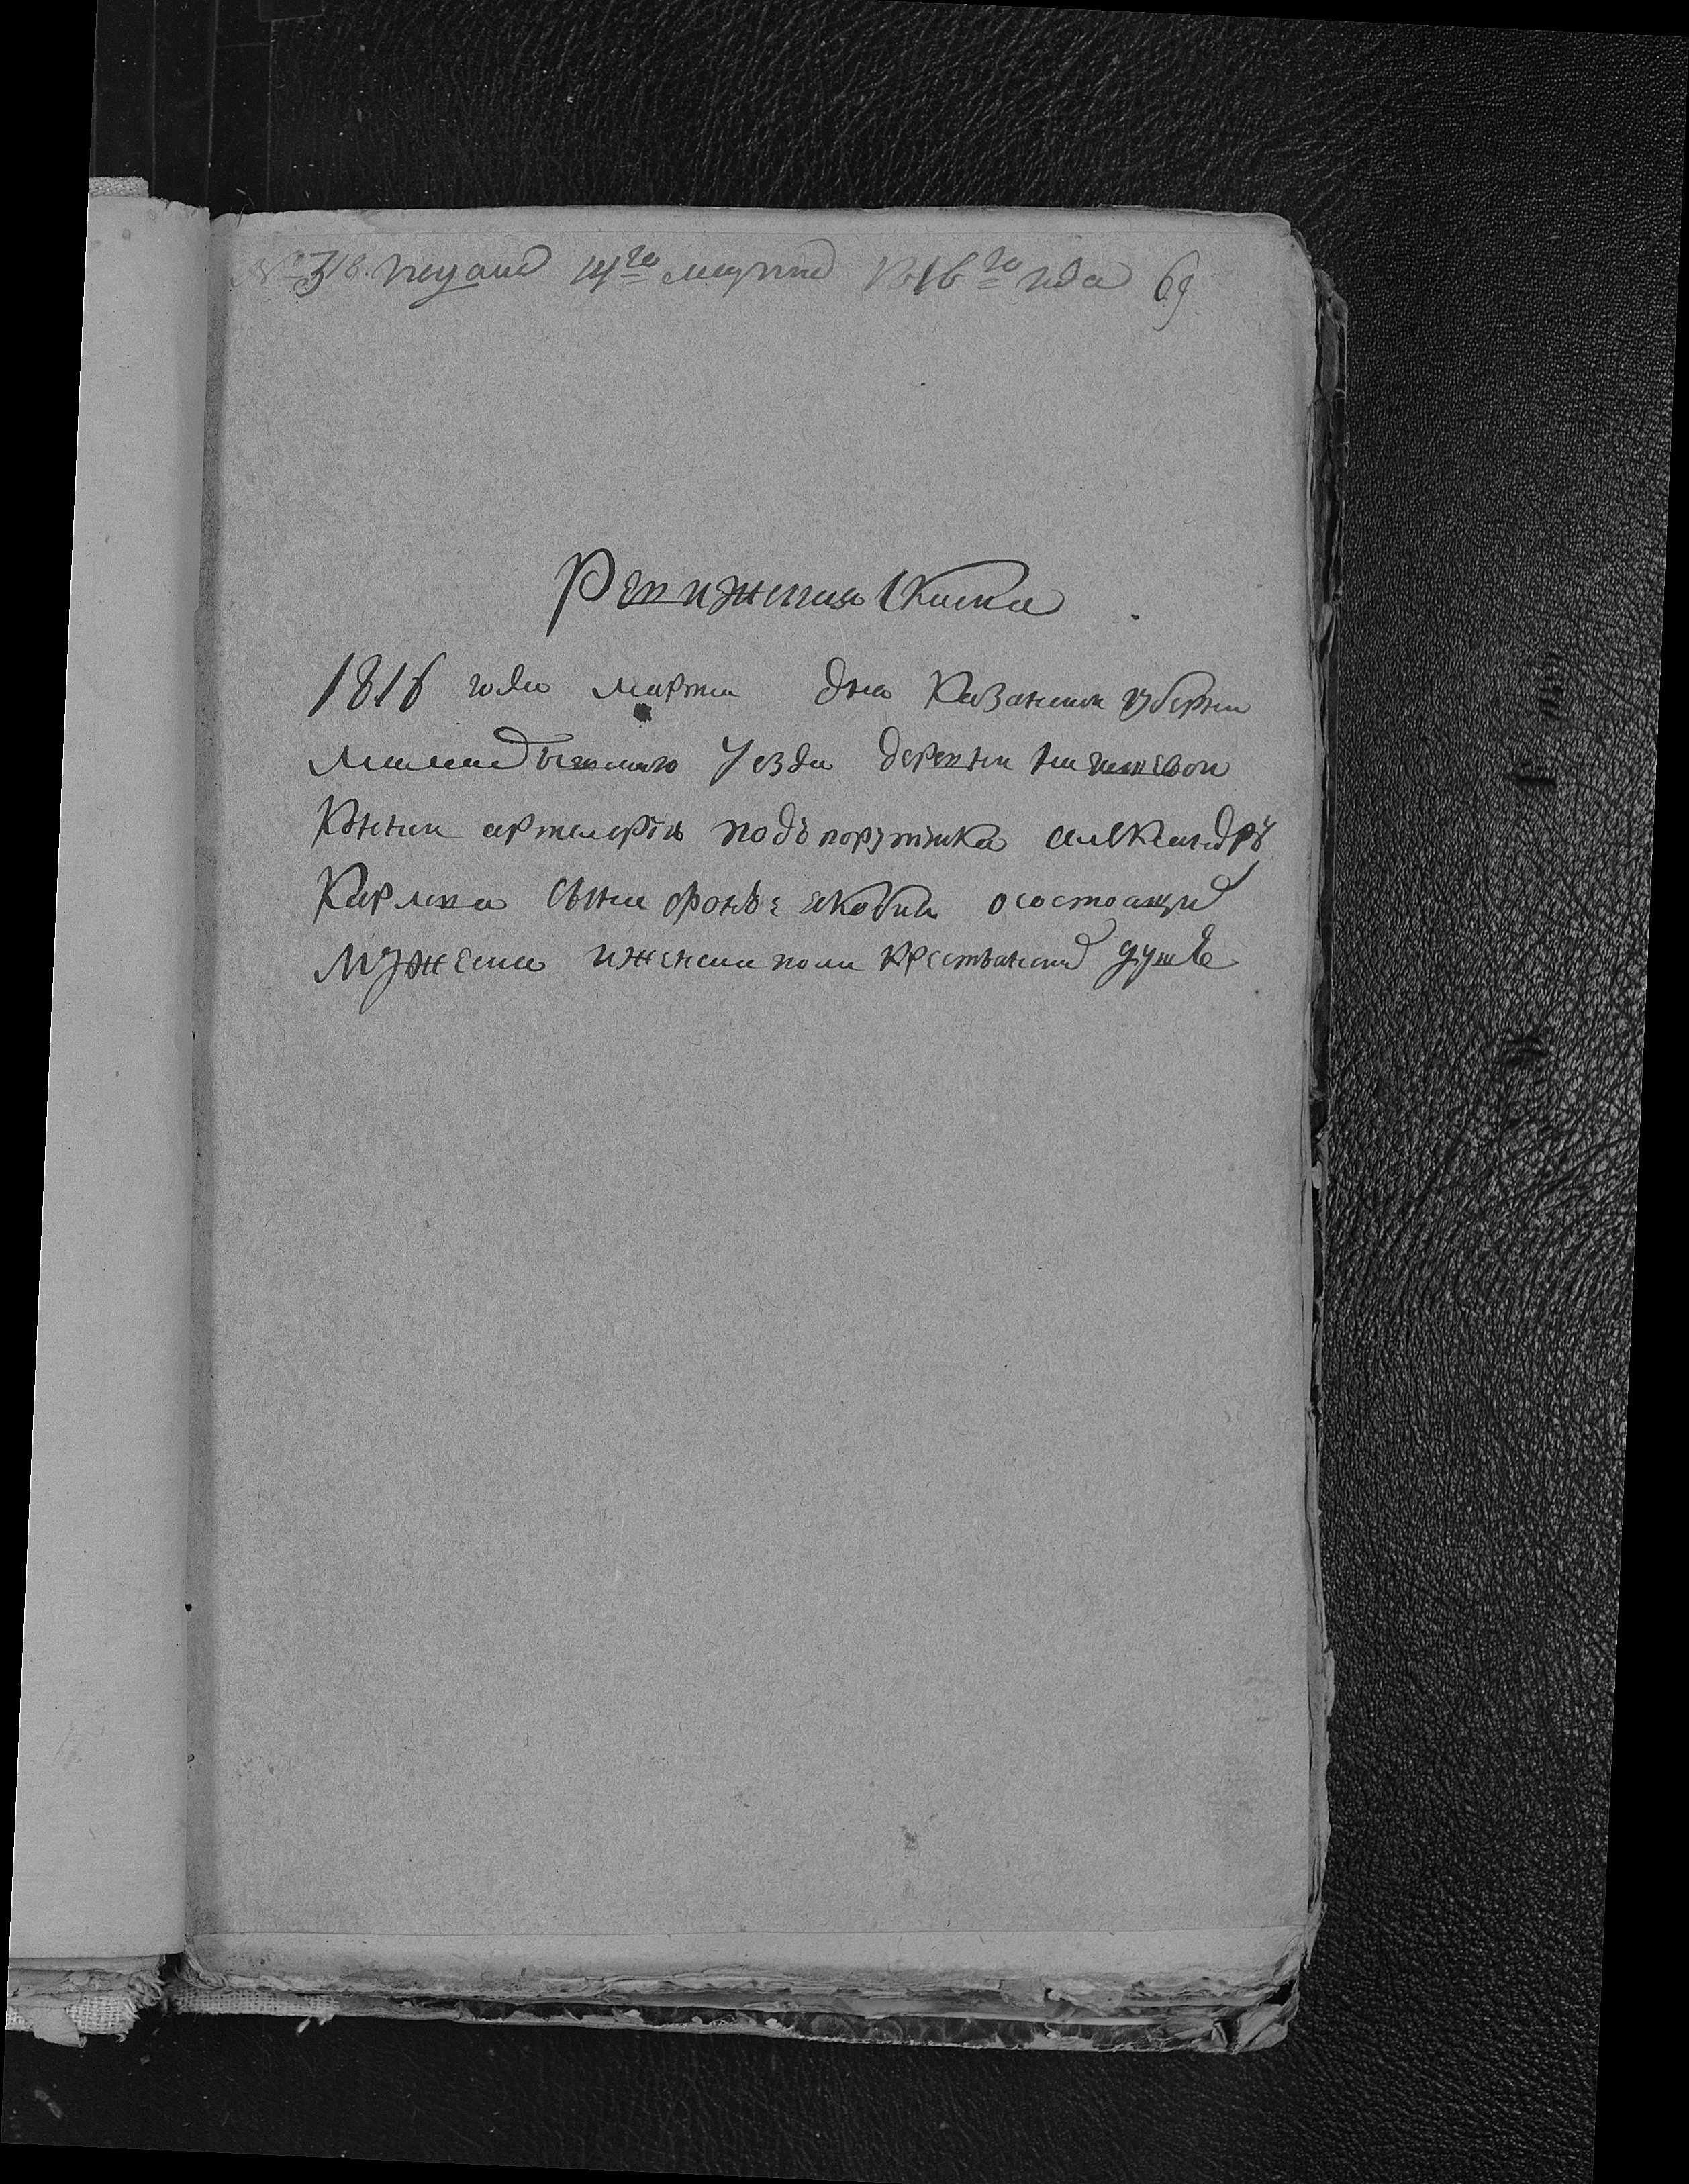 № 318. подана 14го марта 1816го года 69
Ревижская скаска
1816 года марта дня Казанской губернии
Мамадышскаго уезда деревни
Конной артилерїи подъпорутчика александра
Карлова сына фонъ: якобия о состоящих
мужеска и женска пола крестьянских душъ